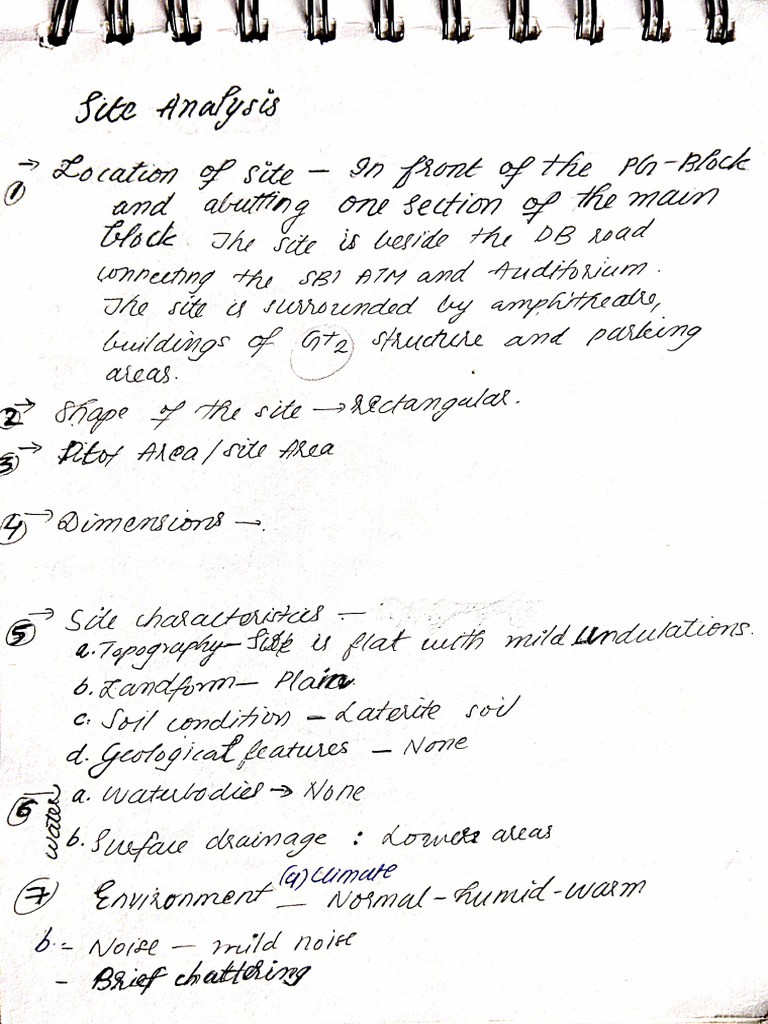 Site Analysis
① → Location of site – In front of the PG-Block
and abutting one section of the main
block. The site is beside the DB road
connecting the SBI ATM and Auditorium.
The site is surrounded by amphitheatre,
buildings of G+2 structure and parking
areas.
② → Shape of the site → rectangular.
③ → Plot Area / site Area
④ → Dimensions –.
⑤ → Site characteristics –
a. Topography – Site is flat with mild undulations.
b. Landform – Plain
c. Soil condition – Laterite soil
d. Geological features – None
⑥ Water a. Waterbodies → None
b. Surface drainage : Lower areas
⑦ Environment – (a) Climate Normal-humid-warm
b. - Noise – mild noise
- Brief chattering